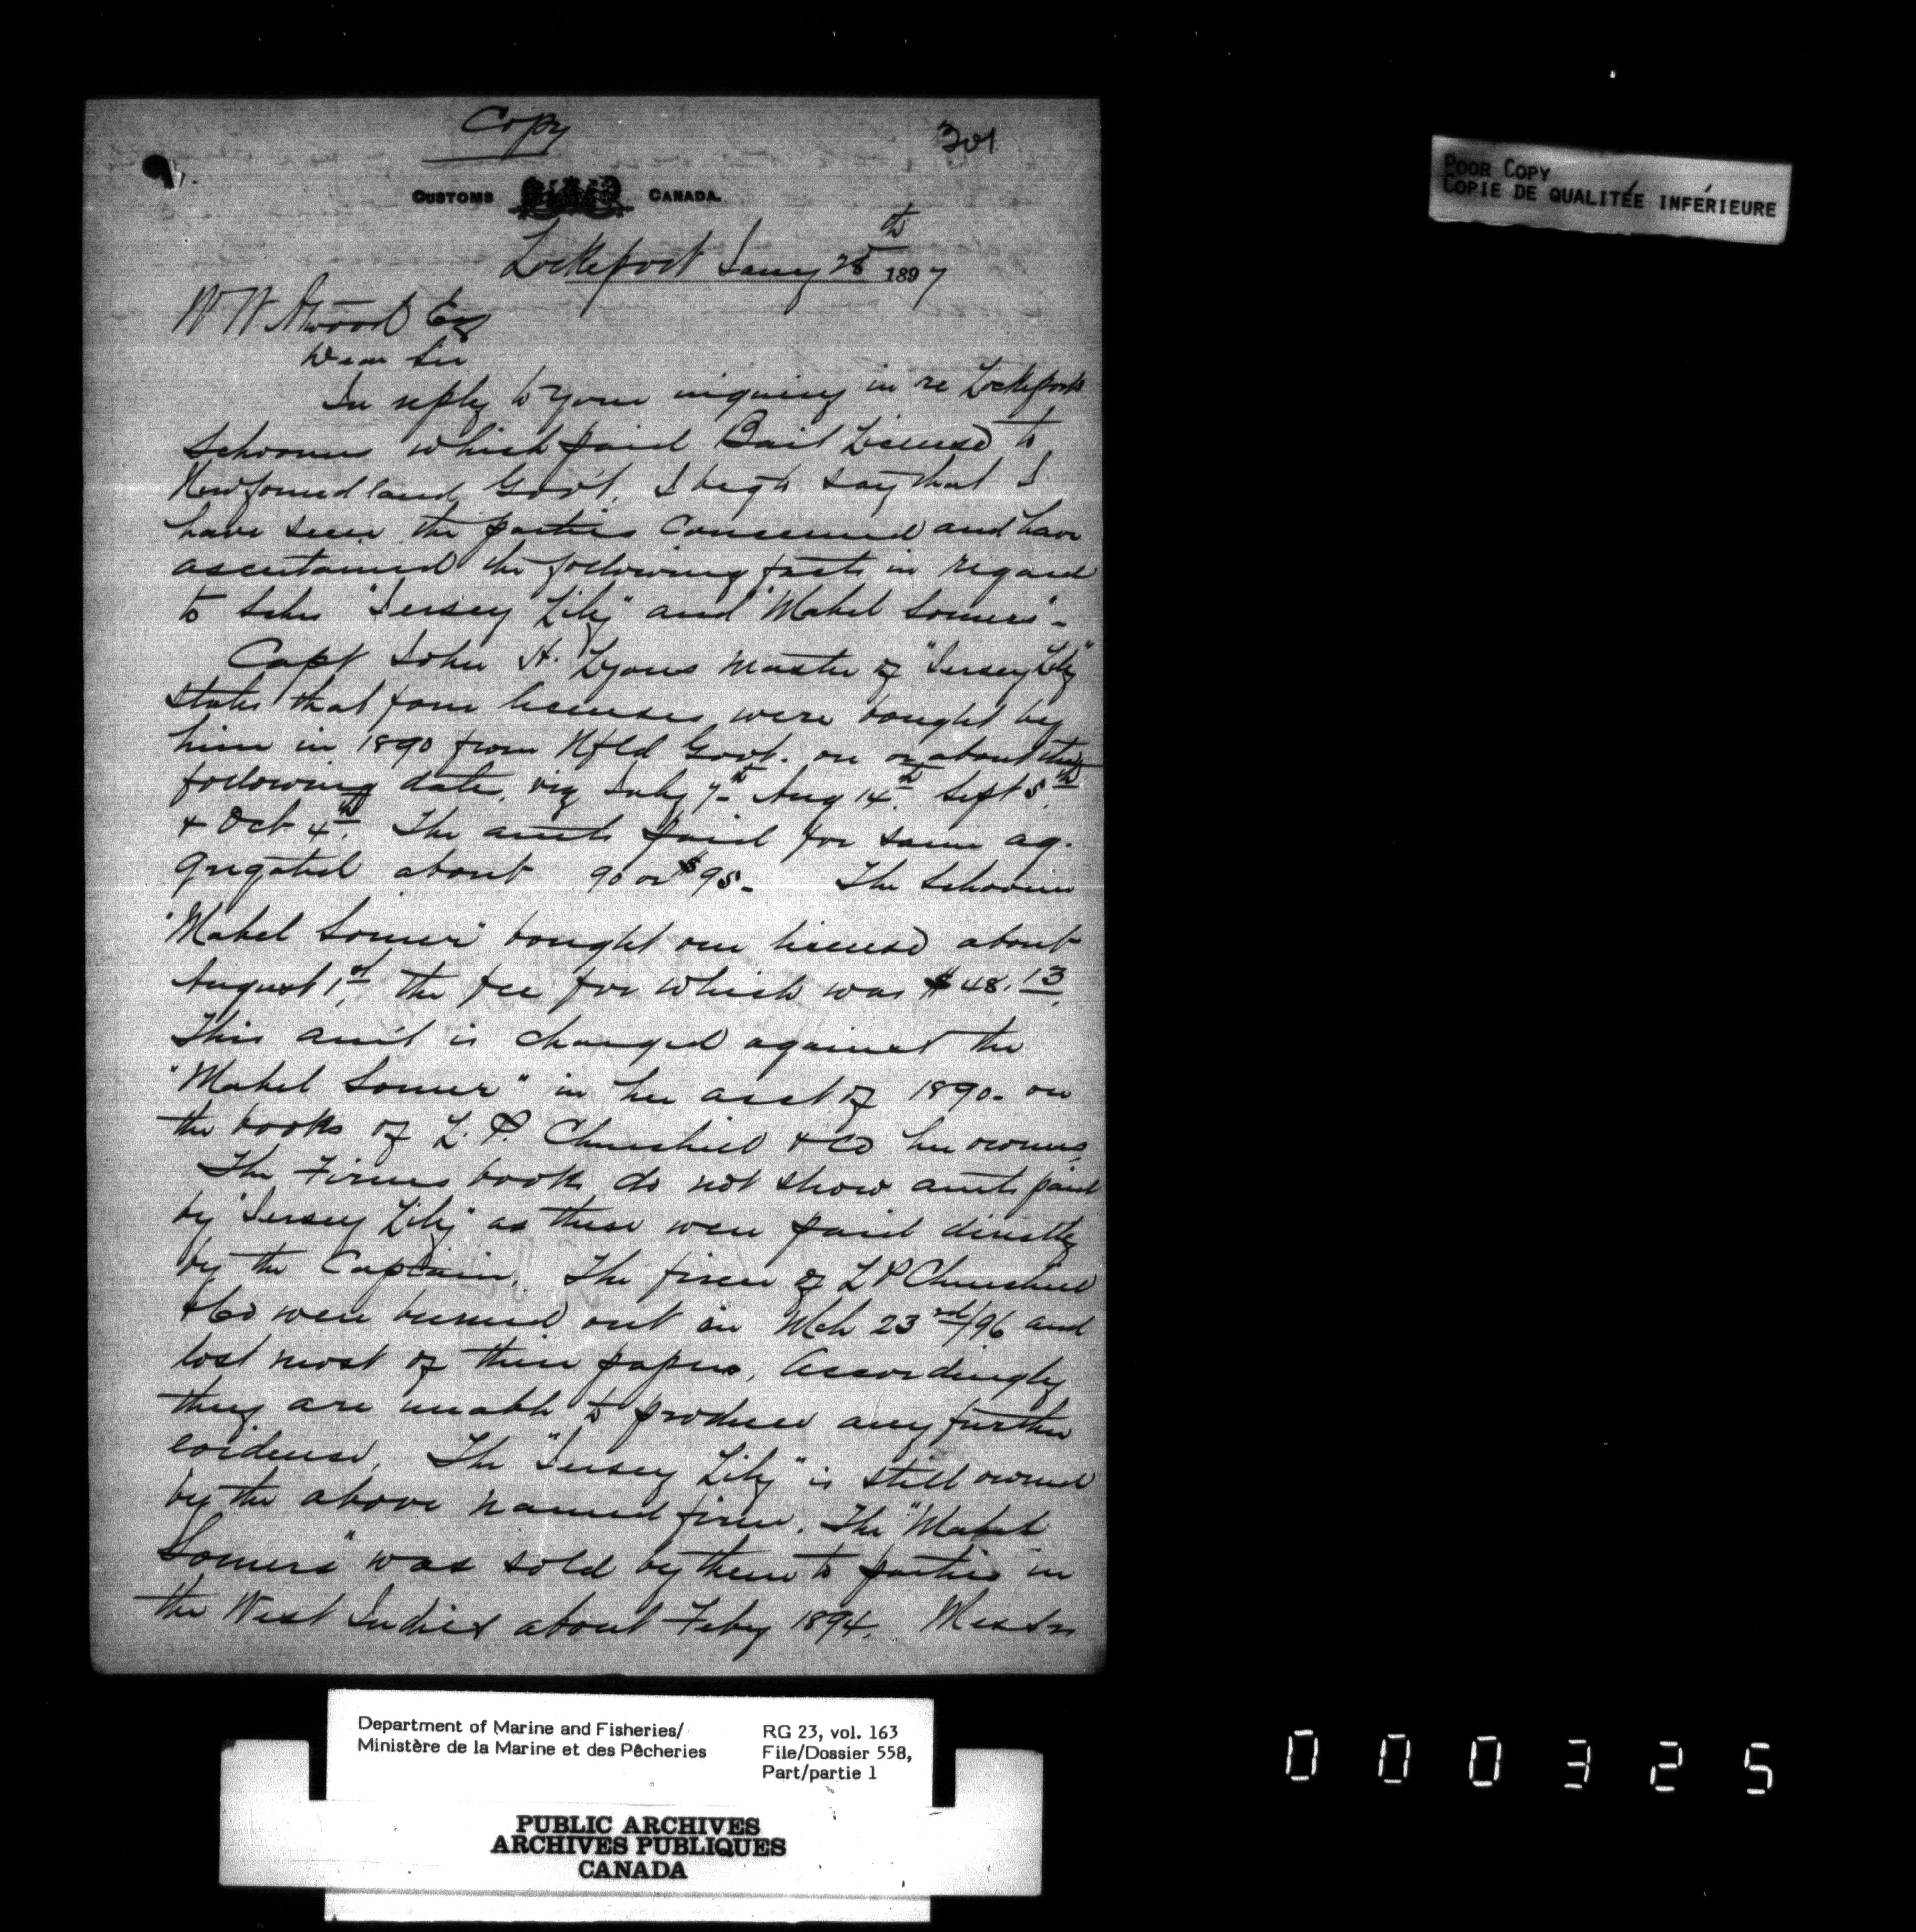 Copy
301
CUSTOMS CANADA.
Lockeport Jany 28th 1897
W W Atwood Esq
Dear Sir
In reply to your inquiry in re Lockeport
Schooners which paid Bait License to
Newfoundland Gov't. I beg to say that I
have seen the parties concerned and have
ascertained the following facts in regard
to Schs "Jersey Lily" and "Mabel Somers" -
Capt John H. Lyons Master of "Jersey Lily"
states that four licenses were bought by
him in 1890 from Nfld Govt. on or about the
following date, viz July 7th Aug 14th. Sept 5th
& Oct 4th. The amts paid for same ag-
gregated about 90 or $95- The Schooner
"Mabel Somers" bought one license about
August 1st, the fee for which was $48.13.
This am't is charged against the
"Mabel Somers" in her acct of 1890- on
the books of L. P. Churchill & Co her owners.
The Firms books do not show amts paid
by "Jersey Lily" as these were paid directly
by the Captain. The firm of L P Churchill
& Co were burned out in Mch 23rd/96 and
lost most of their papers, Accordingly
they are unable to produce any further
evidence. The "Jersey Lily" is still owned
by the above named firm. The "Mabel
Somers" was sold by them to parties in
the West Indies about Feby 1894. Messrs
POOR COPY
COPIE DE QUALITÉE INFÉRIEURE
Department of Marine and Fisheries/
Ministère de la Marine et des Pêcheries
RG 23, vol. 163
File/Dossier 558,
Part/partie 1
PUBLIC ARCHIVES
ARCHIVES PUBLIQUES
CANADA
000325